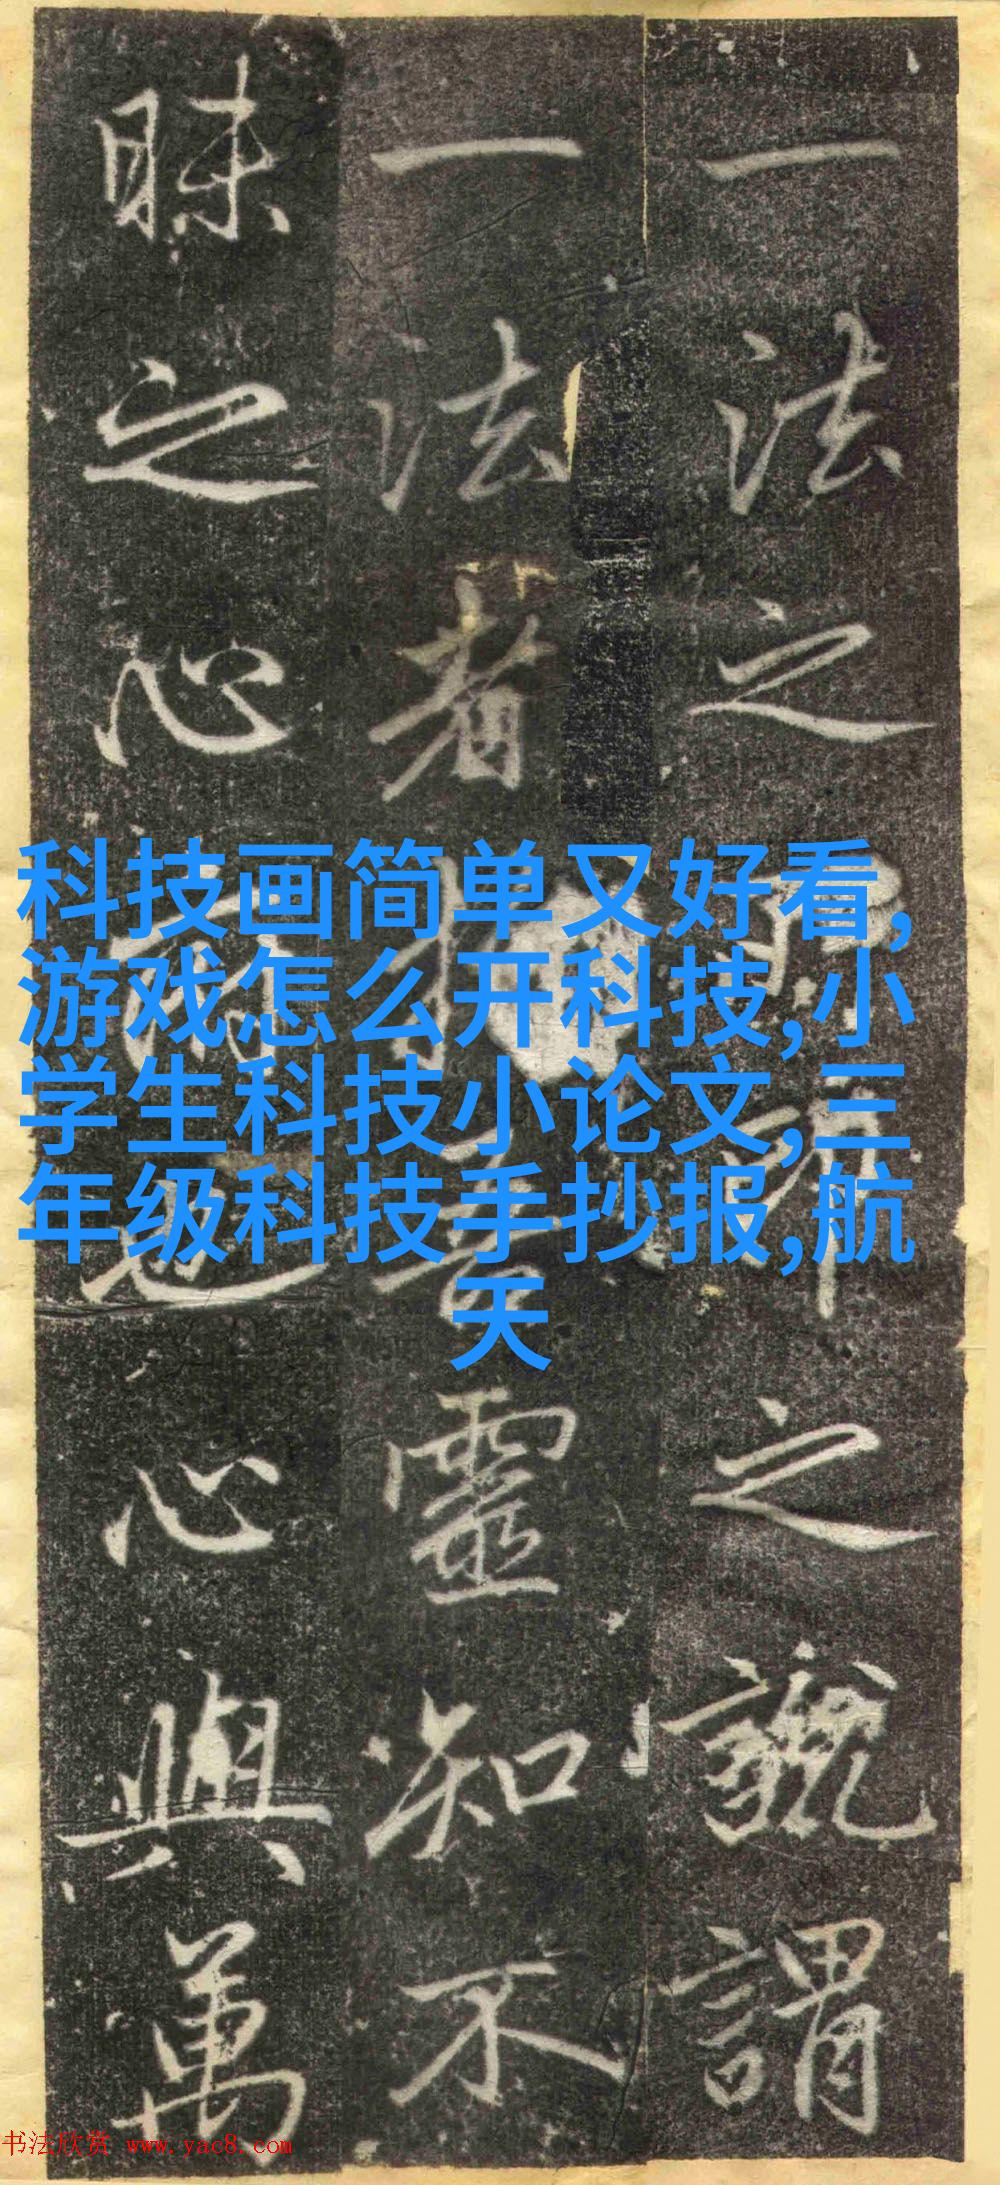 一法之
之號謂
一法者
靈知不
昧之心
也心與萬
科技画简单又好看,
游戏怎么开科技,小
学生科技小论文,三
年级科技手抄报,航
天
书法欣赏 www.yac8.com